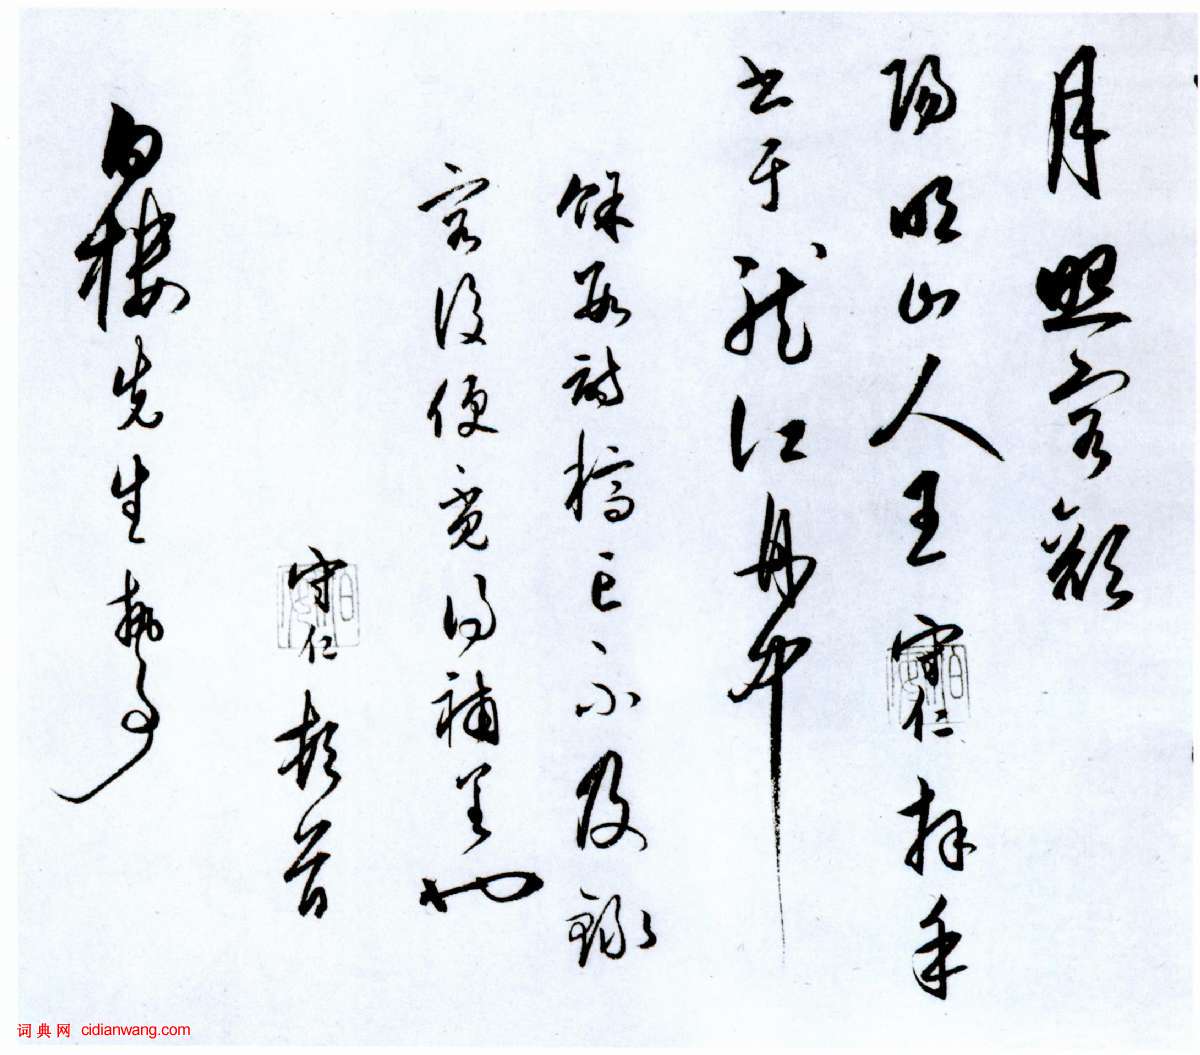 月照容顏
陽明山人王守仁拜手
書于龍江舟中
餘數詩稿已不及錄
容後便覓得補呈也
守仁頓首
白樓先生執事
词典网 cidianwang.com